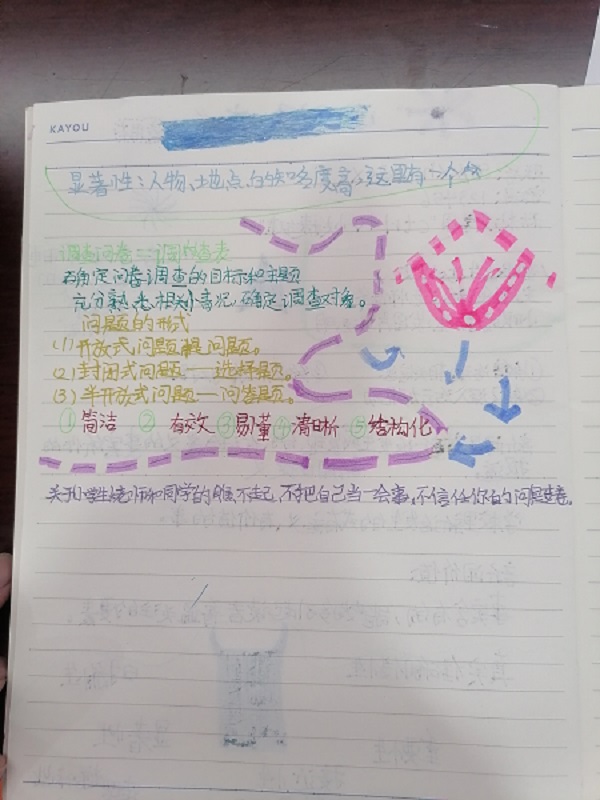 KAYOU
显著性:人物、地点的知名度高,这里有一个
调查问卷
确定问卷调查的目标和主题
充分熟悉相关情况,确定调查对象。
问题的形式
(1)开放式问题 问题。
(2)封闭式问题——选择题。
(3)半开放式问题——问答题。
①简洁 ② 有效 ③易懂 ④清晰 ⑤结构化
关于学生 老师和同学的 不起,不把自己当一会事,不信任你的问